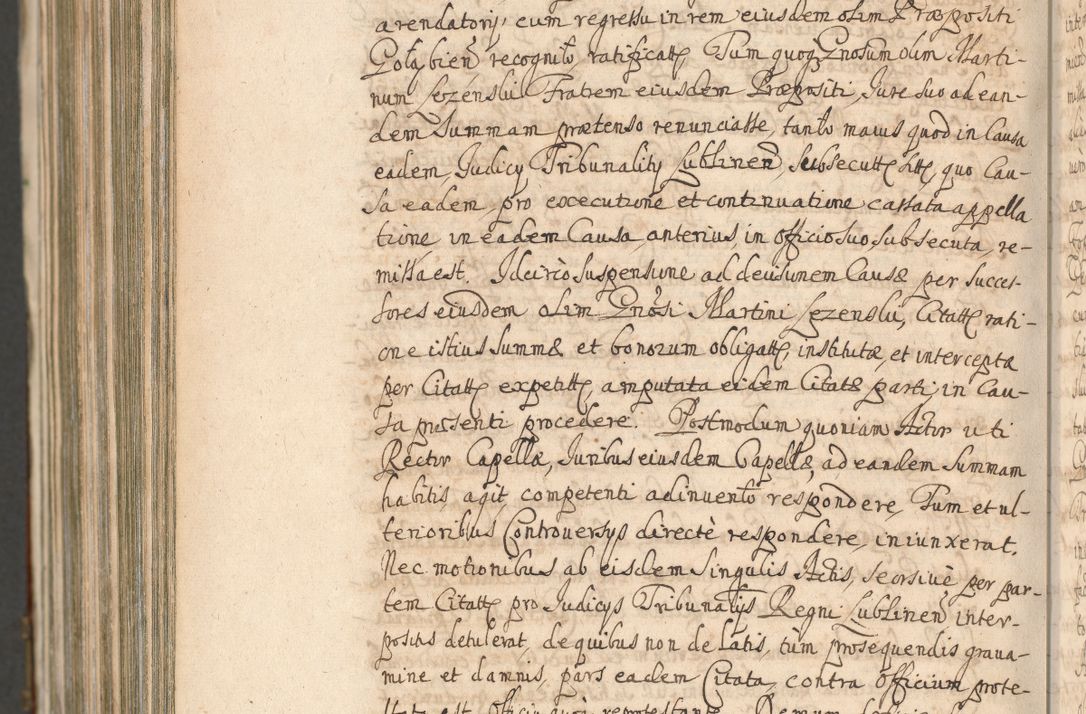 arendatorij, cum regressu in rem eiusdem olim Præpositi
Gołąbien̄ recognit̄o, ratificatt, Tum quoq Gnosum olim Marti-
num Lezenslii Fratrem eiusdem Præpositi, Jure suo ad ean-
dem Summam prætenso renunciasse, tanto maius quod in Causa
eadem, Judicy Tribunality Lublinen̄, subsecutt sitt, quo Cau-
sa eadem, pro excecutione et continuatione cassata appella
tione in eadem Causa anterius, in officio suo subsecuta, re-
missa est. Idcirco suspensione ad decisionem Causæ per succes-
sores eiusdem olim Gnosi Martini Lezenslii, Citatt rati-
one istius Summæ et bonorum obligatt, institutæ, et intercepta
per Citatt expetitt, amputata eidem Citatæ parti, in Cau-
sa præsenti procedere. Postmodum quoniam Actor uti
Rector Capellæ, Juribus eiusdem Capellæ, ad eandem Summam
habitis, agit, competenti adinvento respondere, Tum et ul-
terioribus Controversys directè respondere, iniunxerat.
Nec motionibus ab eisdem singulis Actis, seorsivè per par-
tem Citatt pro Judicys Tribunalijs Regni Lublinen̄ inter-
positis detulerat, de quibus non delatis, tum prosequendis grava-
mine et damnis, pars eadem Citata, contra Officium prote-